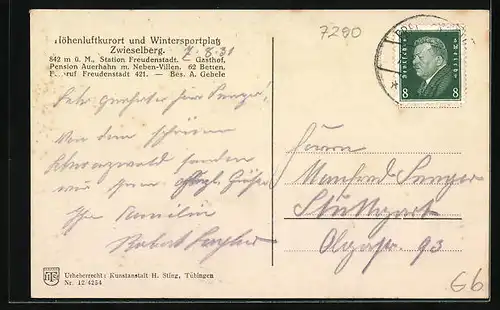 Höhenluftkurort und Wintersportplatz
Zwieselberg.
7.8.31
842 m ü. M., Station Freudenstadt. Gasthof,
Pension Auerhahn m. Neben-Villen. 62 Betten.
Freudenstadt 421. — Bes. A. Gebele
7290
Deutsches Reich
8 8
Sehr geehrter Herr
Von dem schönen
Schwarzwald senden
wir Ihnen Grüße
Ihre Familie
Robert
Herrn
Manfred
Stuttgart
Olgastr. 93
Urheberrecht: Kunstanstalt H. Sting, Tübingen
Nr. 12/4254
G6